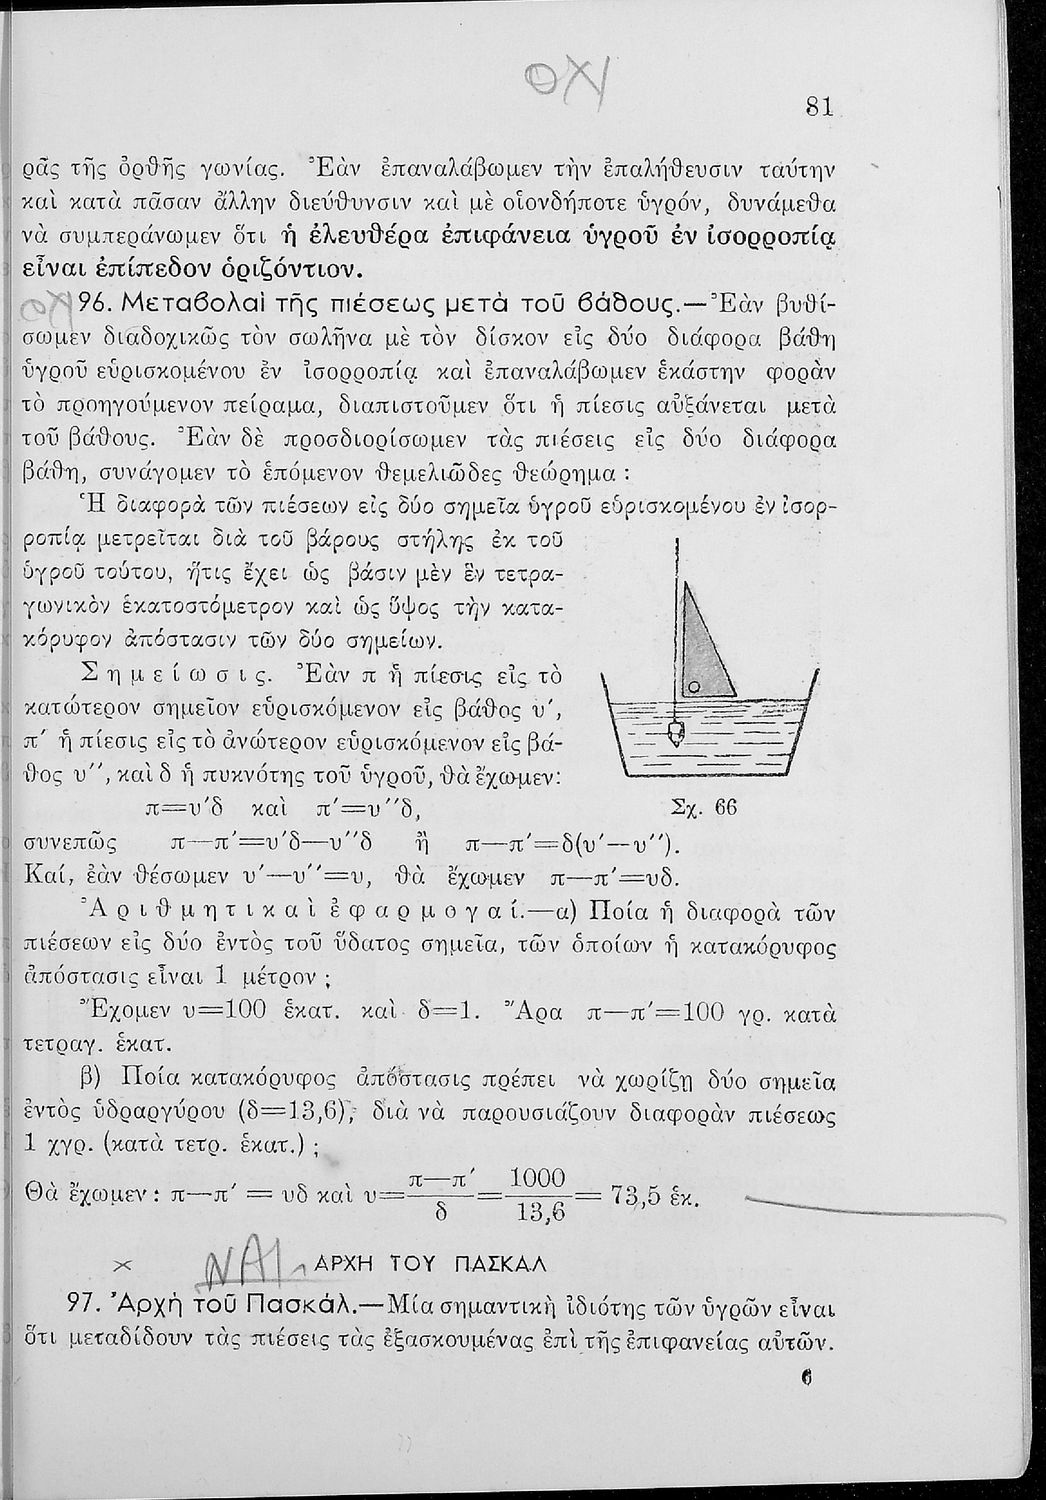 ΟΧΙ
81
ρᾶς τῆς ὀρθῆς γωνίας. Ἐὰν ἐπαναλάβωμεν τὴν ἐπαλήθευσιν ταύτην
καὶ κατὰ πᾶσαν ἄλλην διεύθυνσιν καὶ μὲ οἱονδήποτε ὑγρόν, δυνάμεθα
νὰ συμπεράνωμεν ὅτι ἡ ἐλευθέρα ἐπιφάνεια ὑγροῦ ἐν ἰσορροπίᾳ
εἶναι ἐπίπεδον ὁριζόντιον.
ΟΧΙ 96. Μεταβολαὶ τῆς πιέσεως μετὰ τοῦ βάθους.—Ἐὰν βυθί-
σωμεν διαδοχικῶς τὸν σωλῆνα μὲ τὸν δίσκον εἰς δύο διάφορα βάθη
ὑγροῦ εὑρισκομένου ἐν ἰσορροπίᾳ καὶ ἐπαναλάβωμεν ἑκάστην φορὰν
τὸ προηγούμενον πείραμα, διαπιστοῦμεν ὅτι ἡ πίεσις αὐξάνεται μετὰ
τοῦ βάθους. Ἐὰν δὲ προσδιορίσωμεν τὰς πιέσεις εἰς δύο διάφορα
βάθη, συνάγομεν τὸ ἑπόμενον θεμελιῶδες θεώρημα :
Ἡ διαφορὰ τῶν πιέσεων εἰς δύο σημεῖα ὑγροῦ εὑρισκομένου ἐν ἰσορ-
ροπίᾳ μετρεῖται διὰ τοῦ βάρους στήλης ἐκ τοῦ
ὑγροῦ τούτου, ἥτις ἔχει ὡς βάσιν μὲν ἓν τετρα-
γωνικὸν ἑκατοστόμετρον καὶ ὡς ὕψος τὴν κατα-
κόρυφον ἀπόστασιν τῶν δύο σημείων.
Σημείωσις. Ἐὰν π ἡ πίεσις εἰς τὸ
κατώτερον σημεῖον εὑρισκόμενον εἰς βάθος υ′,
π′ ἡ πίεσις εἰς τὸ ἀνώτερον εὑρισκόμενον εἰς βά-
θος υ′′, καὶ δ ἡ πυκνότης τοῦ ὑγροῦ, θὰ ἔχωμεν:
π=υ′δ καὶ π′=υ′′δ,
Σχ. 66
συνεπῶς π—π′=υ′δ—υ′′δ ἢ π—π′=δ(υ′—υ′′).
Καί, ἐὰν θέσωμεν υ′—υ′′=υ, θὰ ἔχωμεν π—π′=υδ.
Ἀριθμητικαὶ ἐφαρμογαί.—α) Ποία ἡ διαφορὰ τῶν
πιέσεων εἰς δύο ἐντὸς τοῦ ὕδατος σημεῖα, τῶν ὁποίων ἡ κατακόρυφος
ἀπόστασις εἶναι 1 μέτρον ;
Ἔχομεν υ=100 ἑκατ. καὶ δ=1. Ἄρα π—π′=100 γρ. κατὰ
τετραγ. ἑκατ.
β) Ποία κατακόρυφος ἀπόστασις πρέπει νὰ χωρίζῃ δύο σημεῖα
ἐντὸς ὑδραργύρου (δ=13,6), διὰ νὰ παρουσιάζουν διαφορὰν πιέσεως
1 χγρ. (κατὰ τετρ. ἑκατ.) ;
Θὰ ἔχωμεν : π—π′ = υδ καὶ υ= π—π′ / δ = 1000 / 13,6 = 73,5 ἑκ.
× ΝΑΙ ΑΡΧΗ ΤΟΥ ΠΑΣΚΑΛ
97. Ἀρχὴ τοῦ Πασκάλ.—Μία σημαντικὴ ἰδιότης τῶν ὑγρῶν εἶναι
ὅτι μεταδίδουν τὰς πιέσεις τὰς ἐξασκουμένας ἐπὶ τῆς ἐπιφανείας αὐτῶν.
6